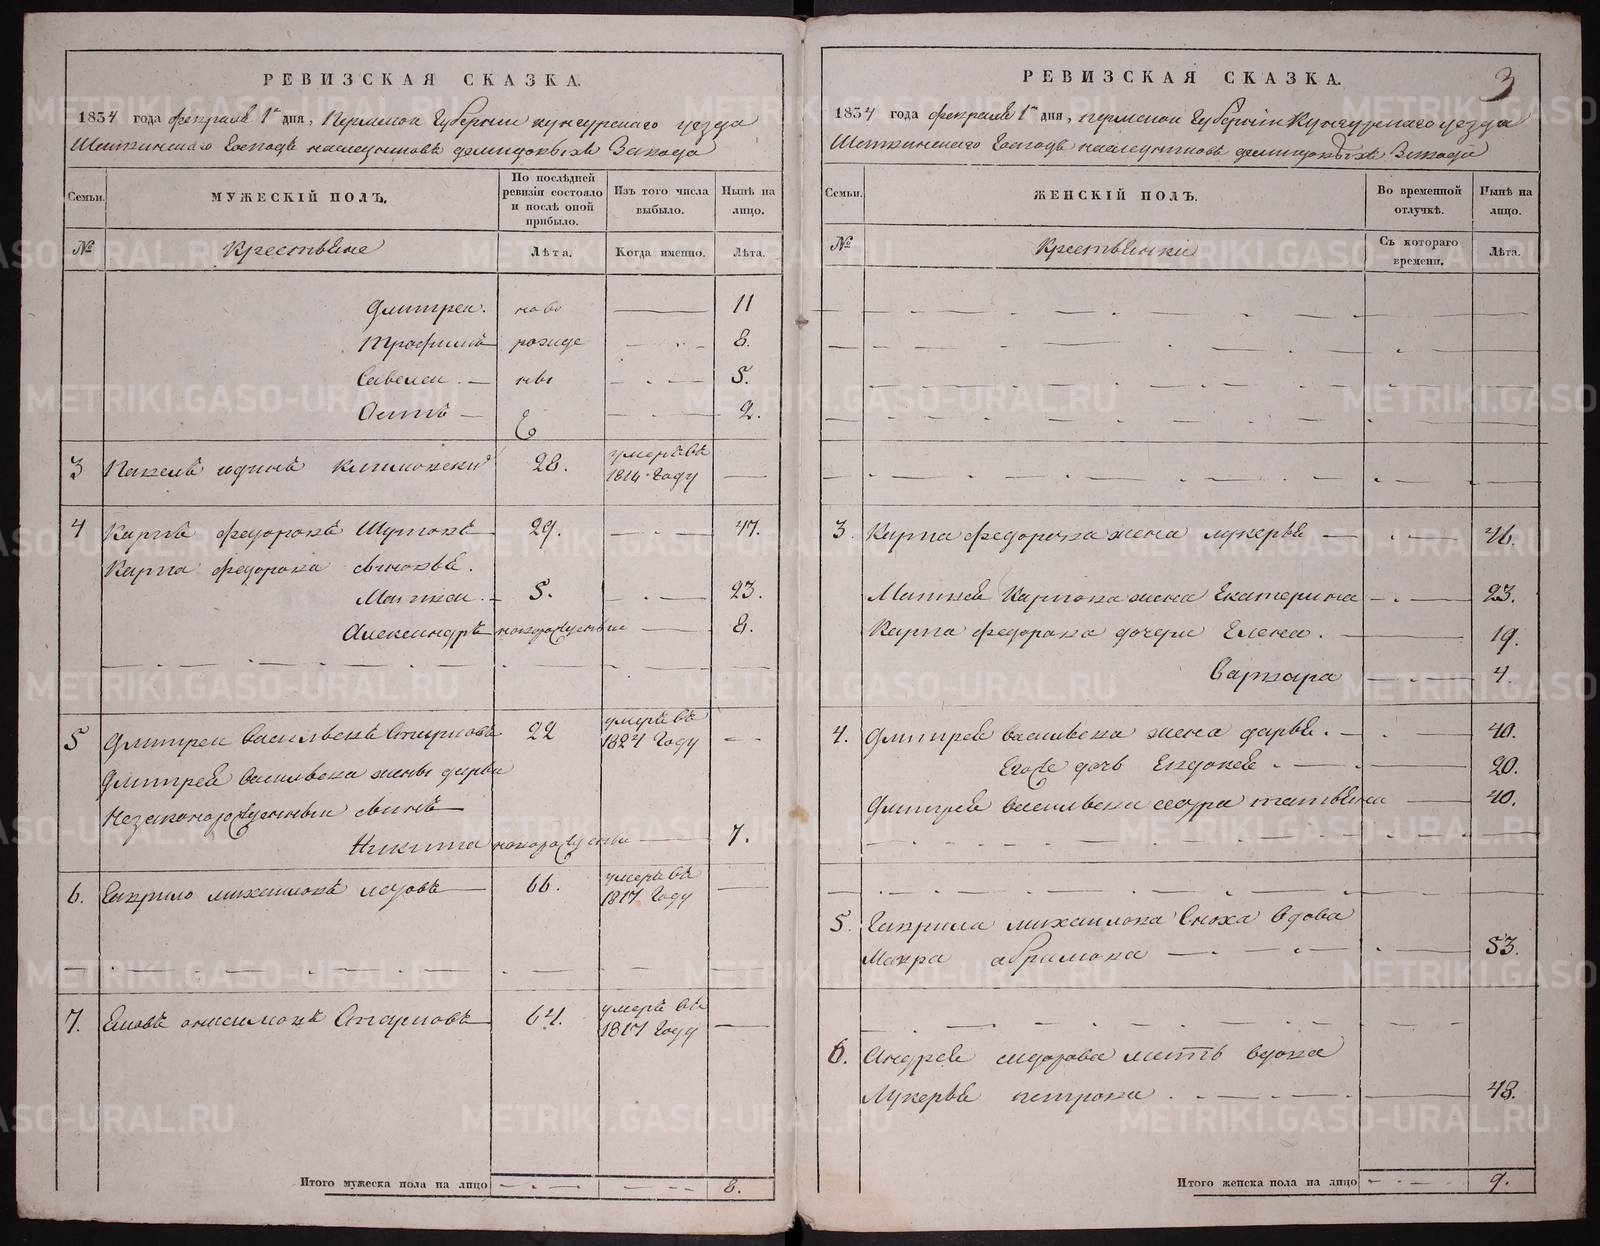 РЕВИЗСКАЯ СКАЗКА.
1834 года февраля 1го дня, Пермской Губернии кунгурскаго уезда
Шаквинскаго Господъ наследниковъ демидовыхъ Завода
Семьи.
МУЖЕСКІЙ ПОЛЪ.
По послѣдней ревизіи состояло и послѣ оной прибыло.
Изъ того числа выбыло.
Нынѣ на лицо.
№
Крестьяне
Лѣта.
Когда именно.
Лѣта.
Дмитреи. ново 11
Трофимъ рожде 8.
Савелеи. 5.
Осипъ 2.
3 Павелъ юдинъ 28. умеръ въ 1814 Году
4 Карпъ федоровъ Шутовъ 29. 47.
Карпа федорова сыновья.
Матвеи. 5. 23.
Александръ новорожденныи 8.
5 Дмитреи Васильевъ Старковъ 22 умеръ въ 1824 Году
Дмитрея Васильева жены дарьи
Незаконорожденныи сынъ
Никита новорожденны 7.
6. Гаврило михаиловъ 66. умеръ въ 1817 Году
7. онисимовъ Старковъ 64. умеръ въ 1817 Году
Итого мужеска пола на лицо 8.
РЕВИЗСКАЯ СКАЗКА.
3
1834 года февраля 1го дня, пермской Губерніи Кунгурскаго уезда
Шаквинскаго Господъ наследниковъ демидовыхъ Завода
Семьи.
ЖЕНСКІЙ ПОЛЪ.
Во временной отлучкѣ.
Нынѣ на лицо.
№
Крестьянки
Съ котораго времени.
Лѣта.
3. Карпа федорова жена лукерья 46.
Матвея Карпова жена Екатерина 23.
Карпа федорова дочери Елена. 19.
Варвара 4.
4. Дмитрея васильева жена дарья. 40.
Егоже дочь Евдокея 20.
Дмитрея васильева сестра татьяна 40.
5. Гаврила михаилова Сноха вдова
Мавра абрамова 53.
6. Андрея сидорова мать вдова
Лукерья петрова 48.
Итого женска пола на лицо 9.
METRIKI.GASO-URAL.RU